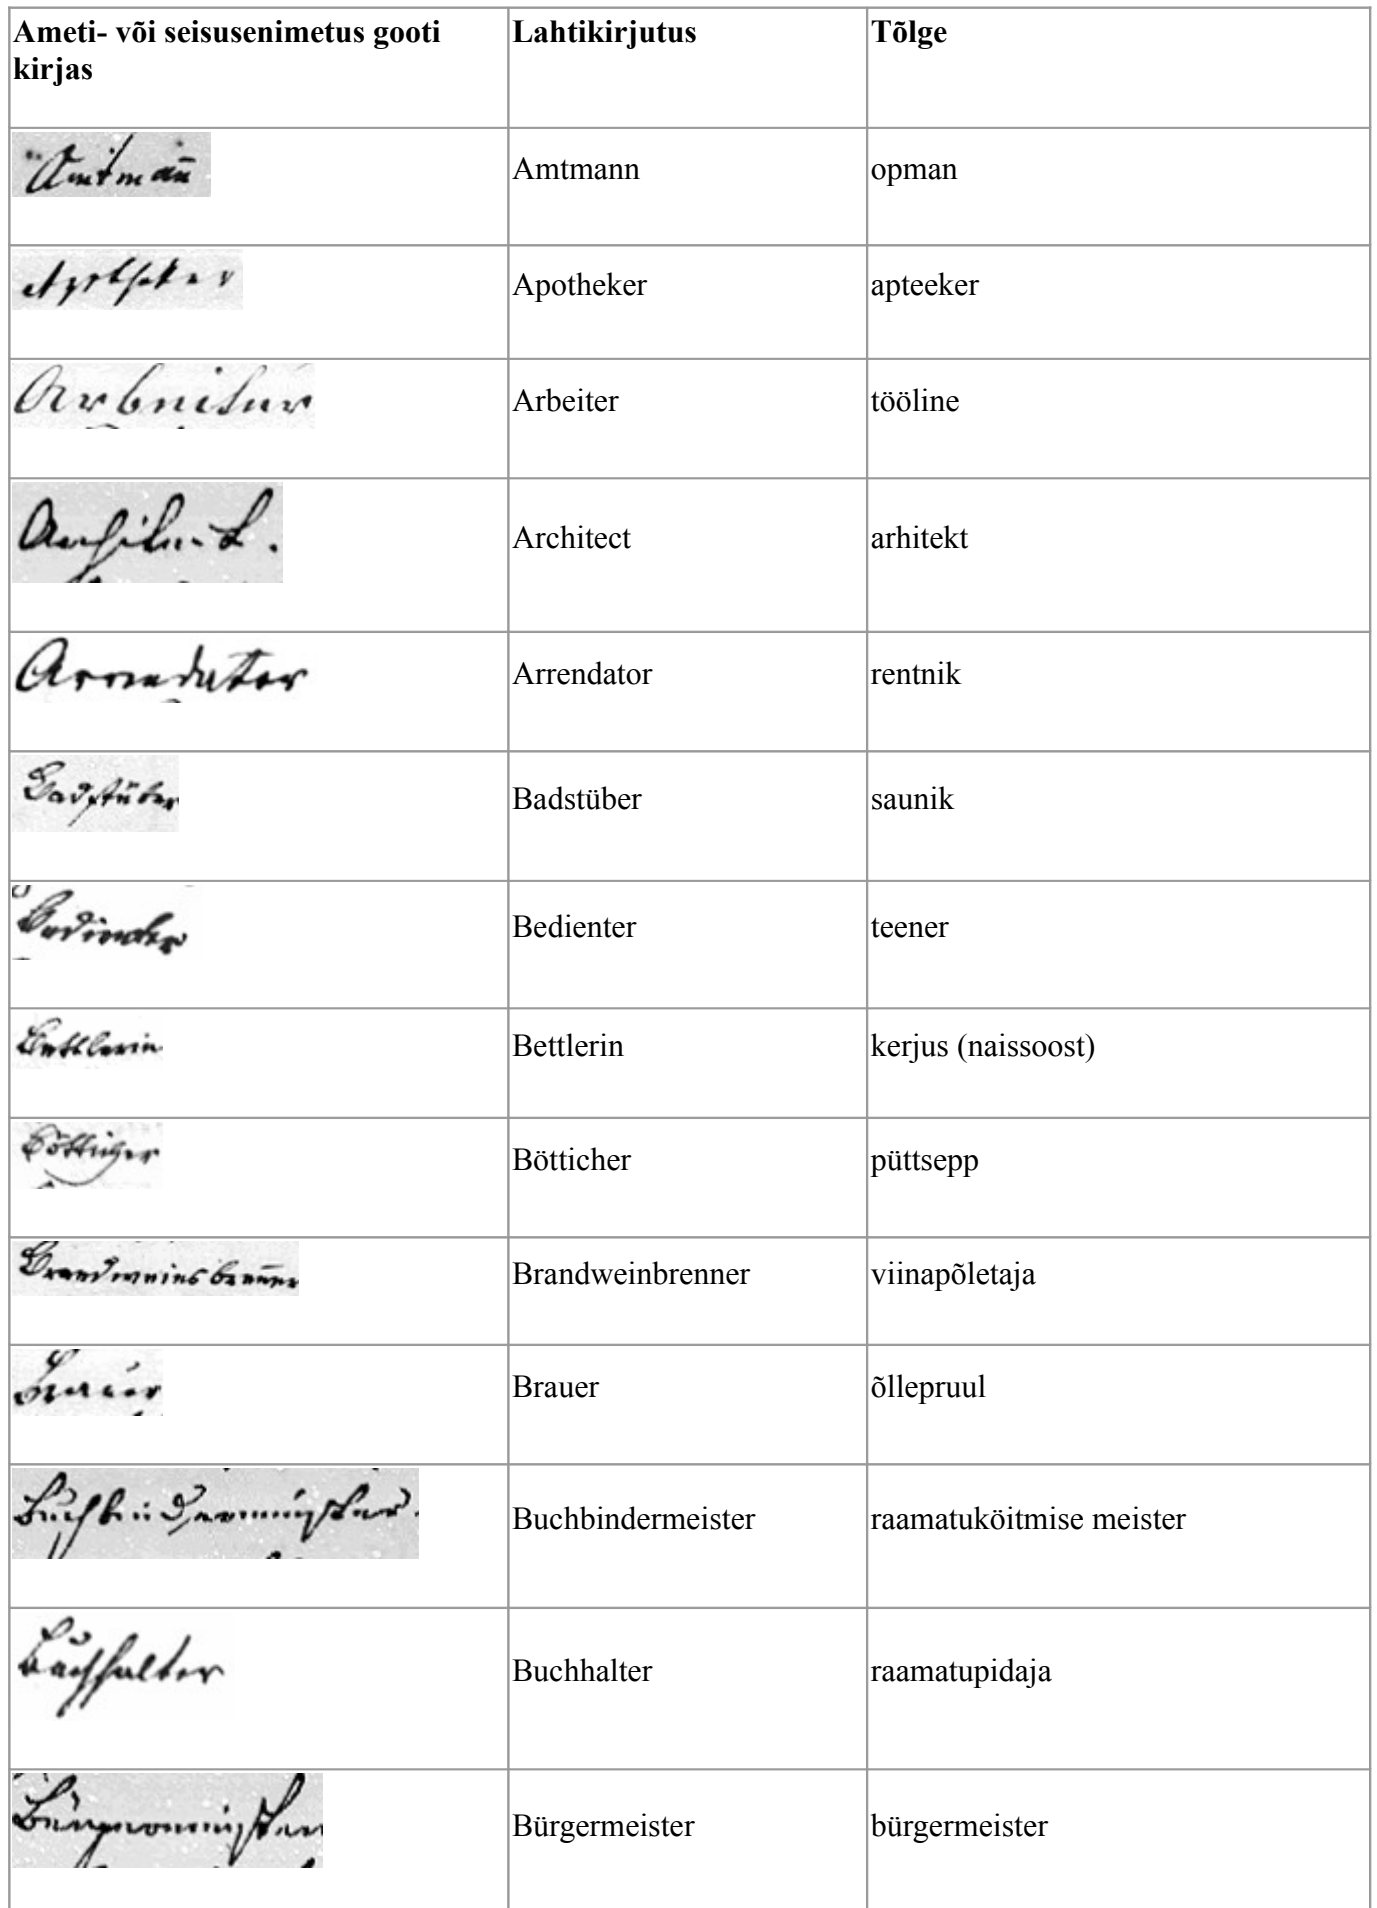 Ameti- või seisusenimetus gooti
kirjas
Lahtikirjutus
Tõlge
Amtmañ
Amtmann
opman
Apotheker
Apotheker
apteeker
Arbeiter
Arbeiter
tööline
Architect.
Architect
arhitekt
Arrendator
Arrendator
rentnik
Badstüber
Badstüber
saunik
Bedienter
Bedienter
teener
Bettlerin
Bettlerin
kerjus (naissoost)
Bötticher
Bötticher
püttsepp
Brandweinsbreñer
Brandweinbrenner
viinapõletaja
Brauer
Brauer
õllepruul
Buchbindermeister.
Buchbindermeister
raamatuköitmise meister
Buchhalter
Buchhalter
raamatupidaja
Bürgermeister
Bürgermeister
bürgermeister